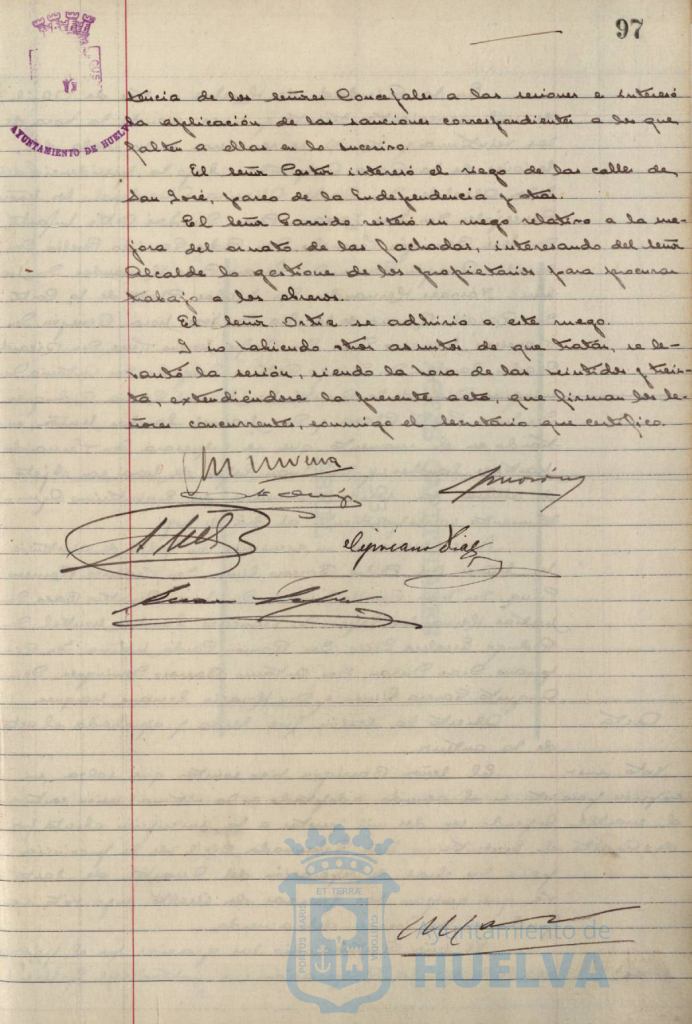 97
AYUNTAMIENTO DE HUELVA
tencia de los señores Concejales a las sesiones e interesó
la aplicación de las sanciones correspondientes a los que
falten a ellas en lo sucesivo.
El señor Pastor interesó el riego de las calles de
San José, paseo de la Independencia y otras.
El señor Garrido reiteró su ruego relativo a la me-
jora del ornato de las fachadas, interesando del señor
Alcalde lo gestione de los propietarios para procurar
trabajo a los obreros.
El señor Ortiz se adhirió a este ruego.
Y no habiendo otros asuntos de que tratar, se le-
vantó la sesión, siendo la hora de las veintidos y trein-
ta, extendiéndose la presente acta, que firman los se-
ñores concurrentes, conmigo el Secretario que certifico.
Cipriano
ET TERRÆ
PORTUS MARIS
CUSTODIA
Ayuntamiento de
HUELVA